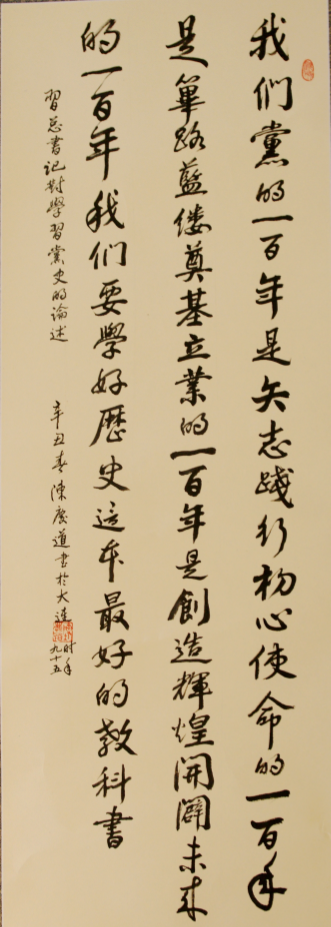 我们黨的一百年是矢志踐行初心使命的一百年
是篳路藍缕奠基立業的一百年是創造輝煌開闢未来
的一百年我们要學好歷史这本最好的教科書
習总書记對學習黨史的论述
辛丑春陳慶道書於大連
时年九十五